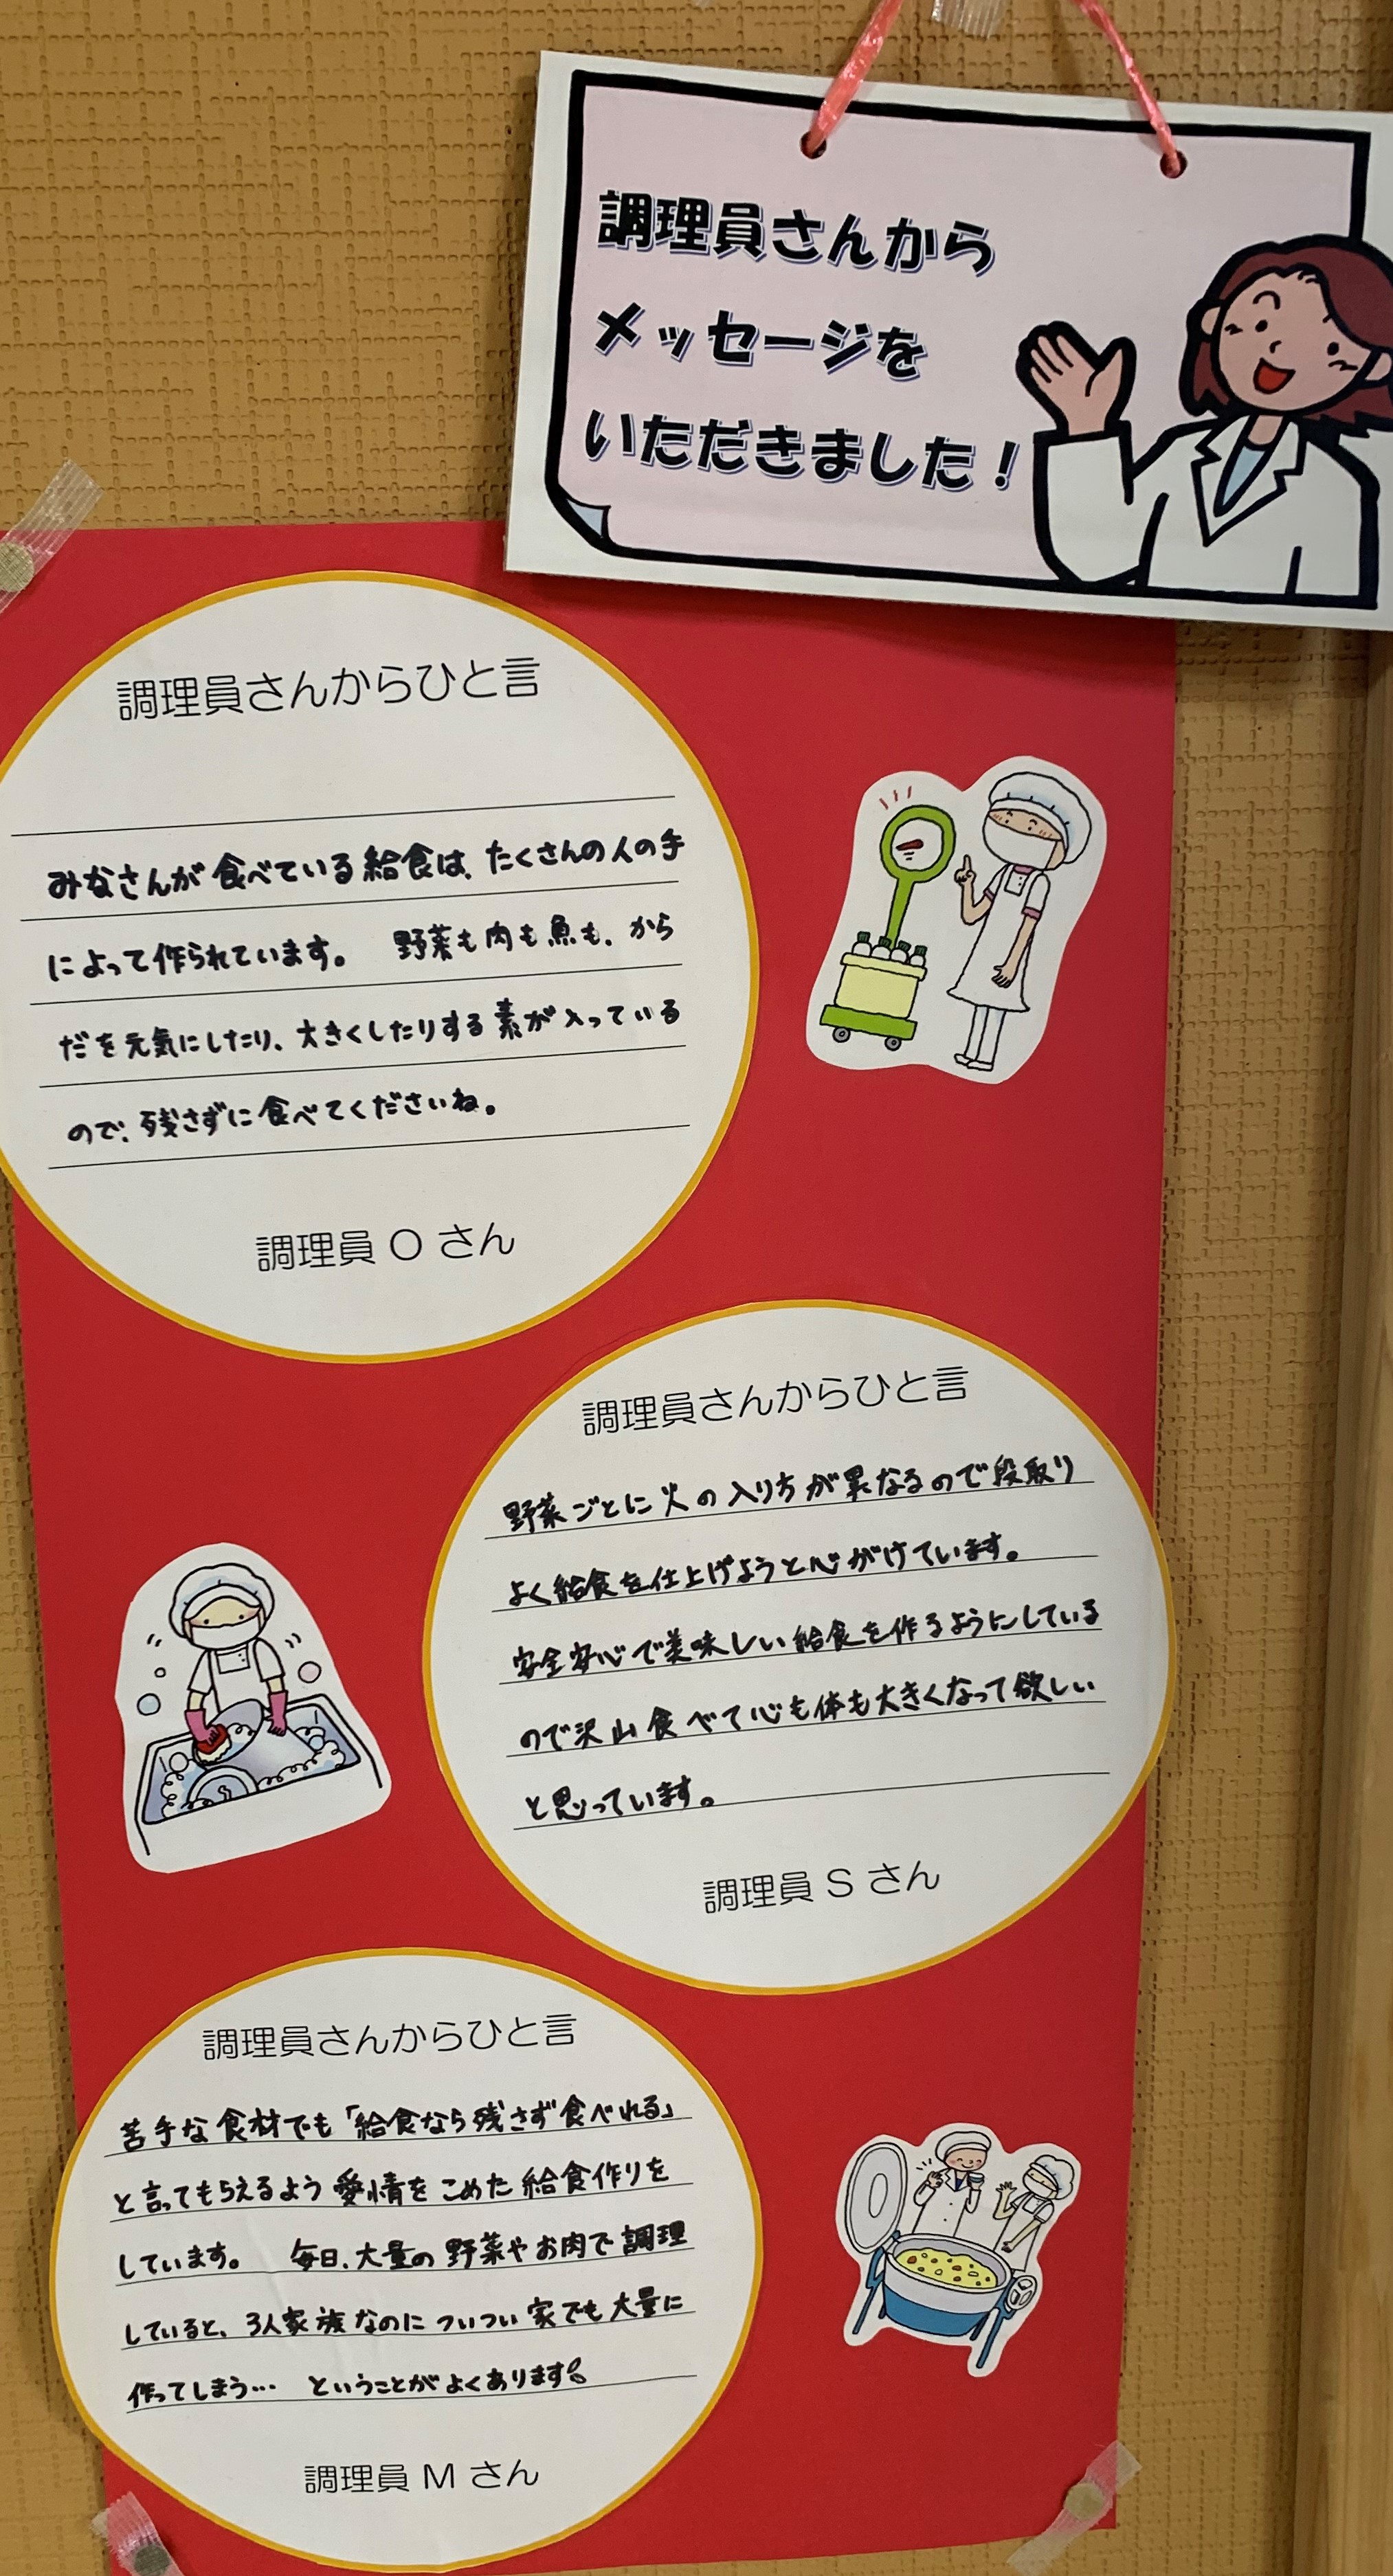 調理員さんから
メッセージを
いただきました！
調理員さんからひと言
みなさんが食べている給食は、たくさんの人の手
によって作られています。 野菜も肉も魚も、から
だを元気にしたり、大きくしたりする素が入っている
ので、残さずに食べてくださいね。
調理員 O さん
調理員さんからひと言
野菜ごとに火の入り方が異なるので段取り
よく給食を仕上げようと心がけています。
安全安心で美味しい給食を作るようにしている
ので沢山食べて心も体も大きくなって欲しい
と思っています。
調理員 S さん
調理員さんからひと言
苦手な食材でも「給食なら残さず食べれる」
と言ってもらえるよう愛情をこめた給食作りを
しています。 毎日、大量の野菜やお肉で調理
していると、3人家族なのについつい家でも大量に
作ってしまう… ということがよくあります
調理員 M さん